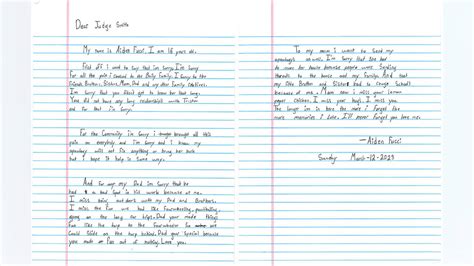 Dear Judge Smith
My name is Aiden Fucci, I am 16 years old.
First off I want to say that im Sorry. Im Sorry
for all the pain I caused to the Baily Family. I Sorry to the
Friends Brothers, Sister, Mom, Dad and any other Family relatives.
I'm Sorry that you didnt get to know her and Love her more.
You did not have any relationship with Tristyn
and for that im Sorry.
For the Community im Sorry I brought all this
pain on everybody and im Sorry. I know my
apology will not fix anything or bring her back
but I hope it help in Some way.
And for my Dad im Sorry that he
had a bad Spot in his work because of me.
I miss being outdoors with my Dad and Brothers.
I miss the fun we had like Fourwheeling, paintballing,
going on the long car Dad your made things
fun like the to the Fourwheeler So we
Could Slide on the Dad your Special because
you made fun out of nothing. Love you.
To my mom I want to Send my
apologys as well. I'm Sorry that She had
to move for home because people were Sending
threats to the house and my Family. And that
my little Brother and Sister had to change Schools
because of me. Mom mom I miss your lemon
peper chicken, I miss your hugs. I miss you.
The longer im in here the more I Forget the
more memories I Lose. Ill never Forget you.
—Aiden Fucci
Sunday March-12-2023